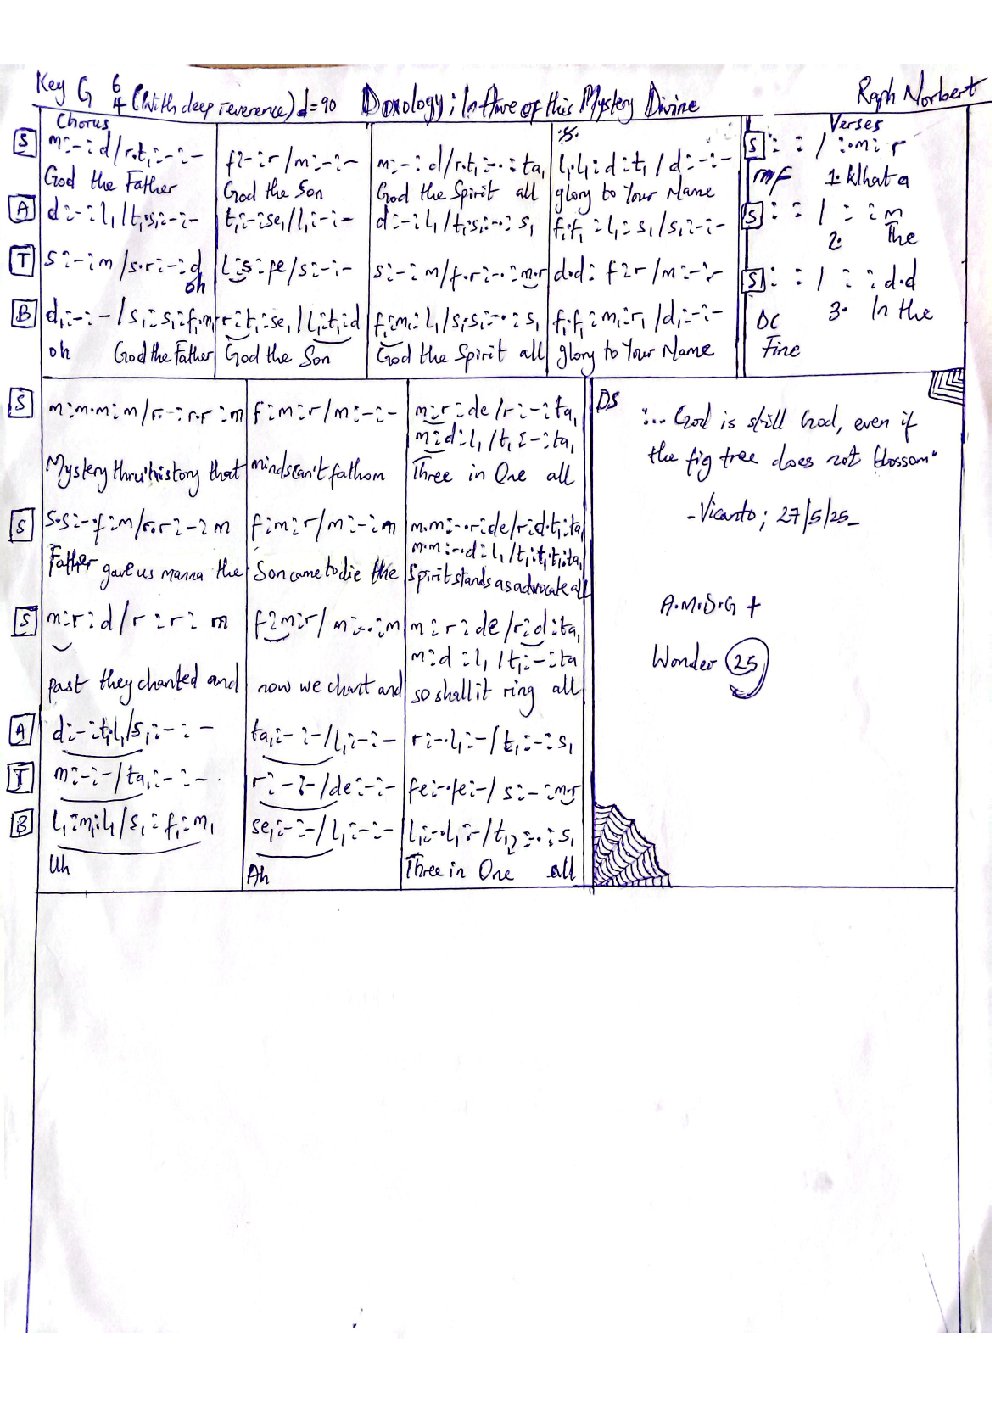 Key G 6/4 (With deep reverence) d=90 Doxology; In Awe of this Mystery Divine Raph Norbert
Chorus
S m:-:d/r.t₁:-:- f:-:r/m:-:- m:-:d/r.t₁:-.:ta₁ l₁.l₁:d:t₁/d:-:-
God the Father God the Son God the Spirit all glory to Your Name
A d:-:l₁/t₁.s₁:-:- t₁:-:se₁/l₁:-:- d:-:l₁/t₁.s₁:-.:s₁ f₁.f₁:l₁:s₁/s₁:-:-
T s:-:m/s.r:-:d l:s:fe/s:-:- s:-:m/f.r:-.:m.r d.d:f:r/m:-:-
oh
B d₁:-:-/s₁:s₁:f₁.m₁ r:t₁:se₁/l₁:t₁:d f₁:m₁:l₁/s₁.s₁:-.:s₁ f₁.f₁:m₁:r₁/d₁:-:-
oh God the Father God the Son God the Spirit all glory to Your Name
Verses
S : : / :.m:r
mf 1. What a
S : : / : :m
2. The
S : : / : :d.d
DC 3. In the
Fine
S m:m.m:m/r.:r.r:m f:m:r/m:-:- m:r:de/r:-:ta₁
m:d:l₁/t₁:-:ta₁
Mystery thru' history that minds can't fathom Three in One all
S s.s:-.f:m/r.r:-:m f:m:r/m:-:m m.m:-.r:de/r:d.t₁:ta₁
m.m:-.d:l₁/t₁:t₁.t₁:ta₁
Father gave us manna the Son came to die the Spirit stands as advocate all
S m:r:d/r:r:m f:m:r/m:-.:m m:r:de/r:d:ta₁
m:d:l₁/t₁:-:ta
past they chanted and now we chant and so shall it ring all
A d:-:t₁.l₁/s₁:-:- ta₁:-:-/l₁:-:- r:-.l₁:-/t₁:-:s₁
T m:-:-/ta₁:-:- r:-:-/de:-:- fe:-.fe:-/s:-:m.s
B l₁:m₁:l₁/s₁:f₁:m₁ se₁:-:-/l₁:-:- l₁:-.l₁:-/t₁:-.:s₁
Uh Ah Three in One all
DS
:... God is still God, even if
the fig tree does not blossom"
-Vicanto; 27/5/25_
A.M.D.G +
Wonder 25